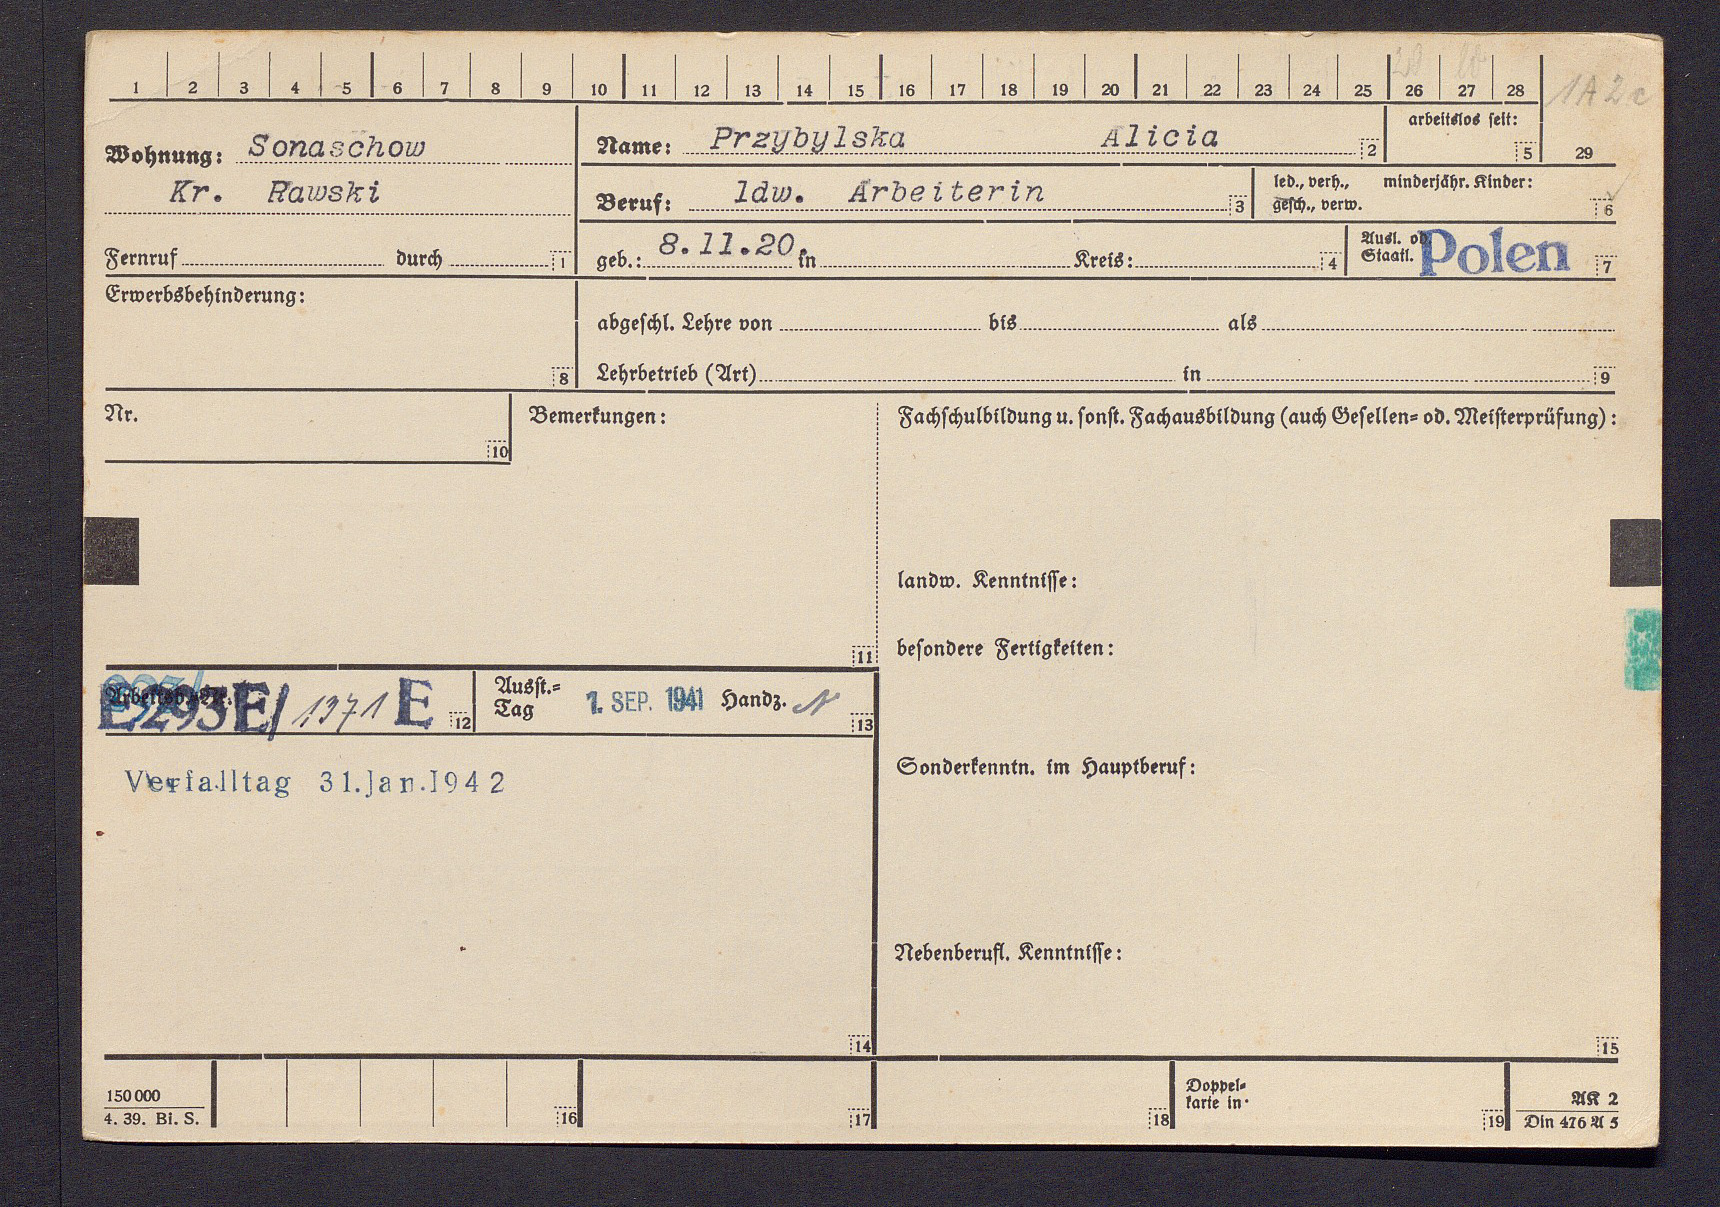 1 2 3 4 5 6 7 8 9 10 11 12 13 14 15 16 17 18 19 20 21 22 23 24 25 26 27 28
1A2c
arbeitslos seit:
5 29
Wohnung: Sonaschow
Name: Przybylska Alicia 2
Kr. Rawski
Beruf: ldw. Arbeiterin 3
led., verh., minderjähr. Kinder:
gesch., verw. 6
Fernruf durch 1
geb.: 8.11.20. in Kreis: 4
Ausl. od.
Staatl. Polen 7
Erwerbsbehinderung:
8
abgeschl. Lehre von bis als
Lehrbetrieb (Art) in 9
Nr.
10
Bemerkungen:
11
Fachschulbildung u. sonst. Fachausbildung (auch Gesellen- od. Meisterprüfung):
landw. Kenntnisse:
besondere Fertigkeiten:
Arbeitsb.-Nr.:
E293E/ 1371 E 12
Ausst.-
Tag 1. SEP. 1941 Handz. N 13
Verfalltag 31.Jan.1942
14
Sonderkenntn. im Hauptberuf:
Nebenberufl. Kenntnisse:
15
150 000
4. 39. Bi. S.
16 17 18
Doppel-
karte in
19
AK 2
Din 476 A 5